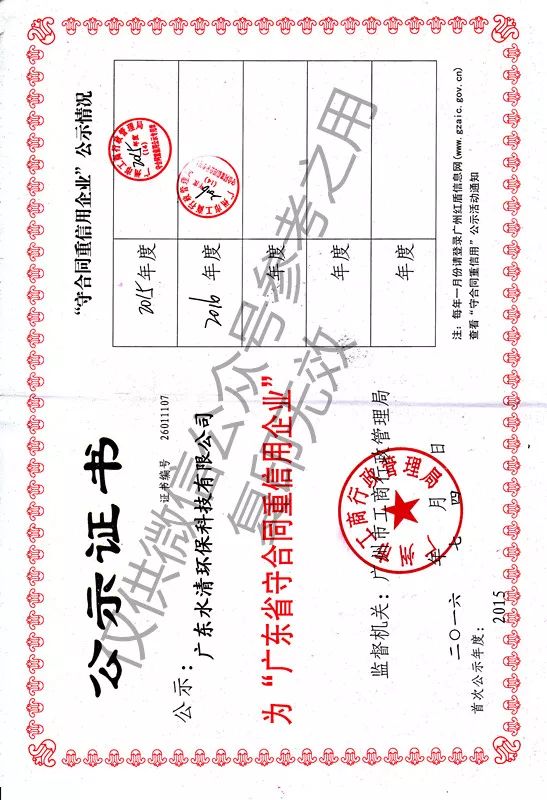 公示证书
证书编号 26011107
公示：
广东水清环保科技有限公司
为“广东省守合同重信用企业”
监督机关：广州市工商行政管理局
二〇一六年七月四日
首次公示年度：2015
广州市工商行政管理局
“守合同重信用企业”公示情况
2015年度
2016年度
年度
年度
年度
注：每年一月份请登录广州红盾信息网(www.gzaic.gov.cn)
查看“守合同重信用”公示活动通知
仅供微信公众号参考之用
复印无效